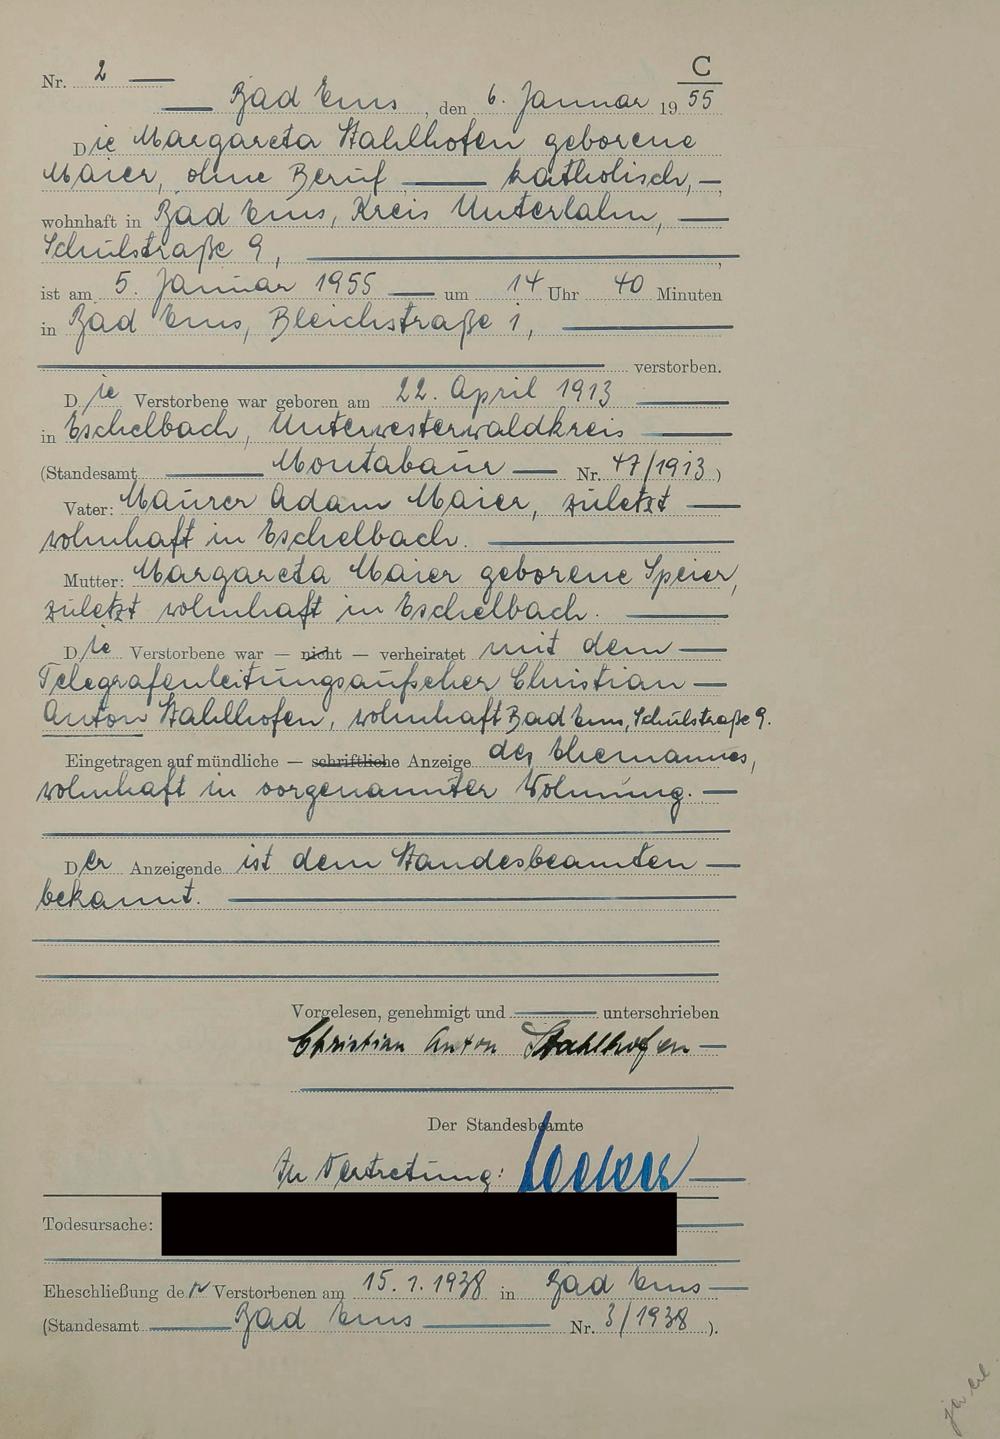 C
Nr. 2
Bad Ems, den 6. Januar 1955
Die Margareta Stahlhofen geborene
Maier, ohne Beruf katholisch,
wohnhaft in Bad Ems, Kreis Unterlahn,
Schulstraße 9,
ist am 5. Januar 1955 um 14 Uhr 40 Minuten
in Bad Ems, Bleichstraße 1,
verstorben.
Die Verstorbene war geboren am 22. April 1913
in Eschelbach, Unterwesterwaldkreis
(Standesamt Montabaur Nr. 47/1913)
Vater: Maurer Adam Maier, zuletzt
wohnhaft in Eschelbach.
Mutter: Margareta Maier geborene Speier,
zuletzt wohnhaft in Eschelbach.
Die Verstorbene war — nicht — verheiratet mit dem
Telegrafenleitungsaufseher Christian
Anton Stahlhofen, wohnhaft Bad Ems, Schulstraße 9.
Eingetragen auf mündliche — schriftliche Anzeige des Ehemannes,
wohnhaft in vorgenannter Wohnung.
Der Anzeigende ist dem Standesbeamten
bekannt.
Vorgelesen, genehmigt und unterschrieben
Christian Anton Stahlhofen
Der Standesbeamte
In Vertretung:
Todesursache:
Eheschließung der Verstorbenen am 15. 1. 1938 in Bad Ems
(Standesamt Bad Ems Nr. 3/1938).